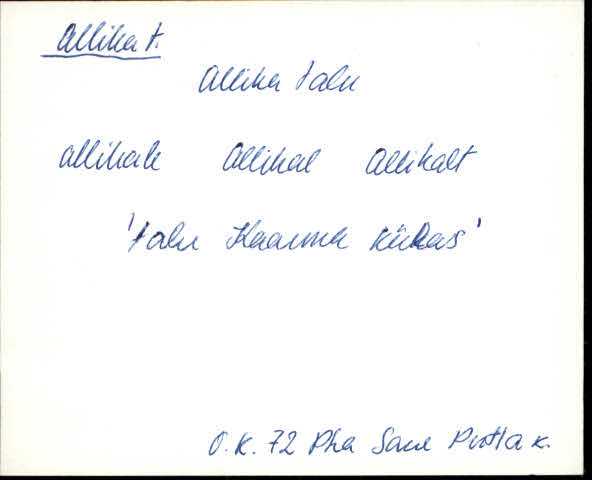 Allika t.
Allika talu
Allikale Allikal Allikalt
'talu Kaarma külas'
O.K. 72 Pha Saue Putla k.